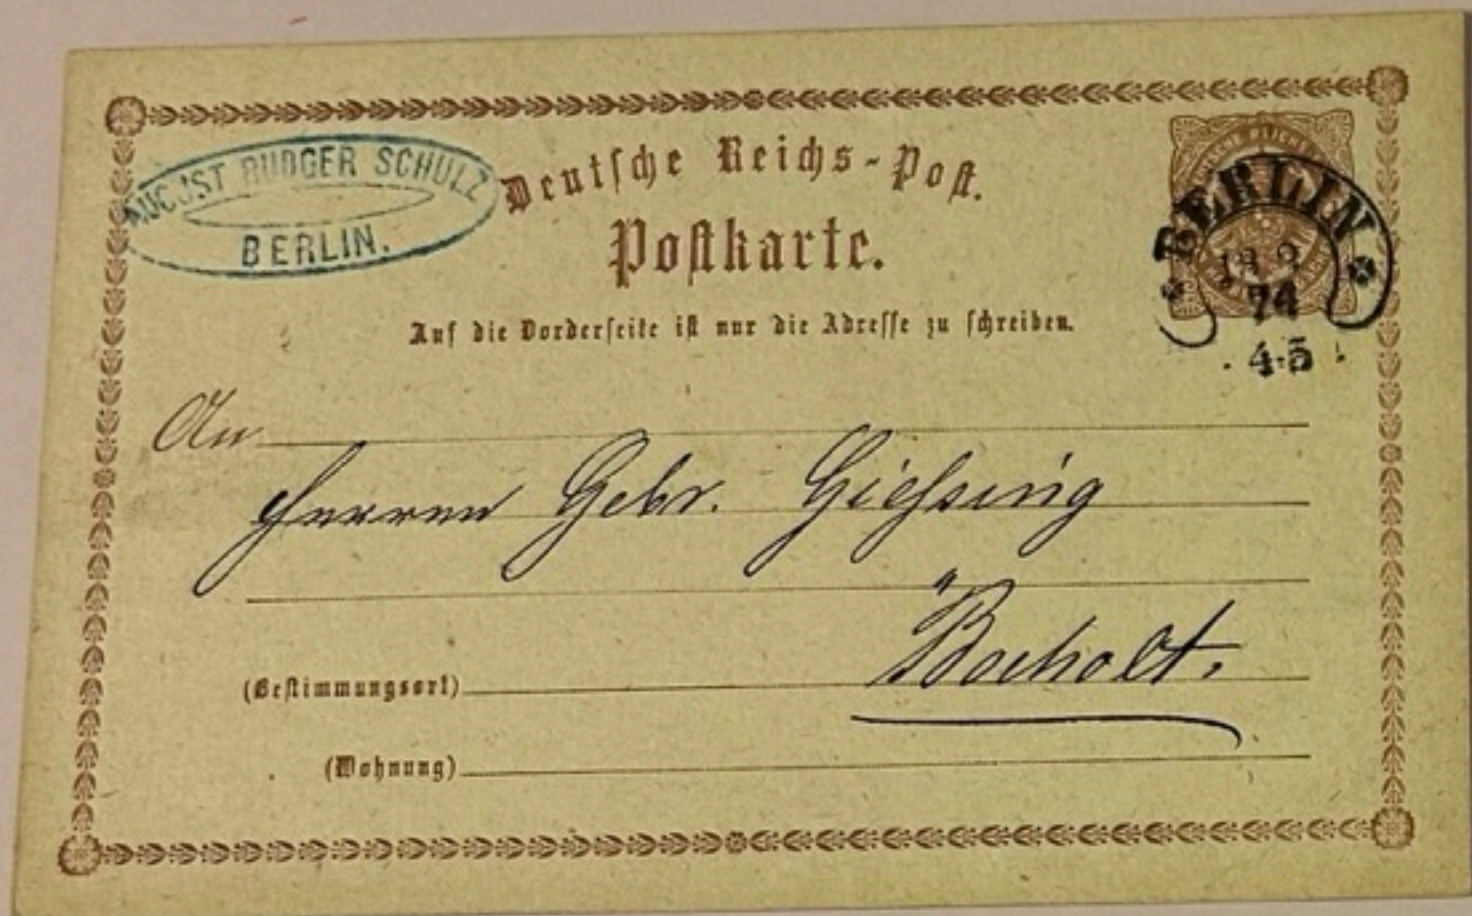 AUGUST RUDGER SCHULZ
BERLIN.
Deutsche Reichs-Post.
Postkarte.
Auf die Vorderseite ist nur die Adresse zu schreiben.
BERLIN
74
4-5
An
Herren Gebr. Giessing
Bocholt.
(Bestimmungsort)
(Wohnung)